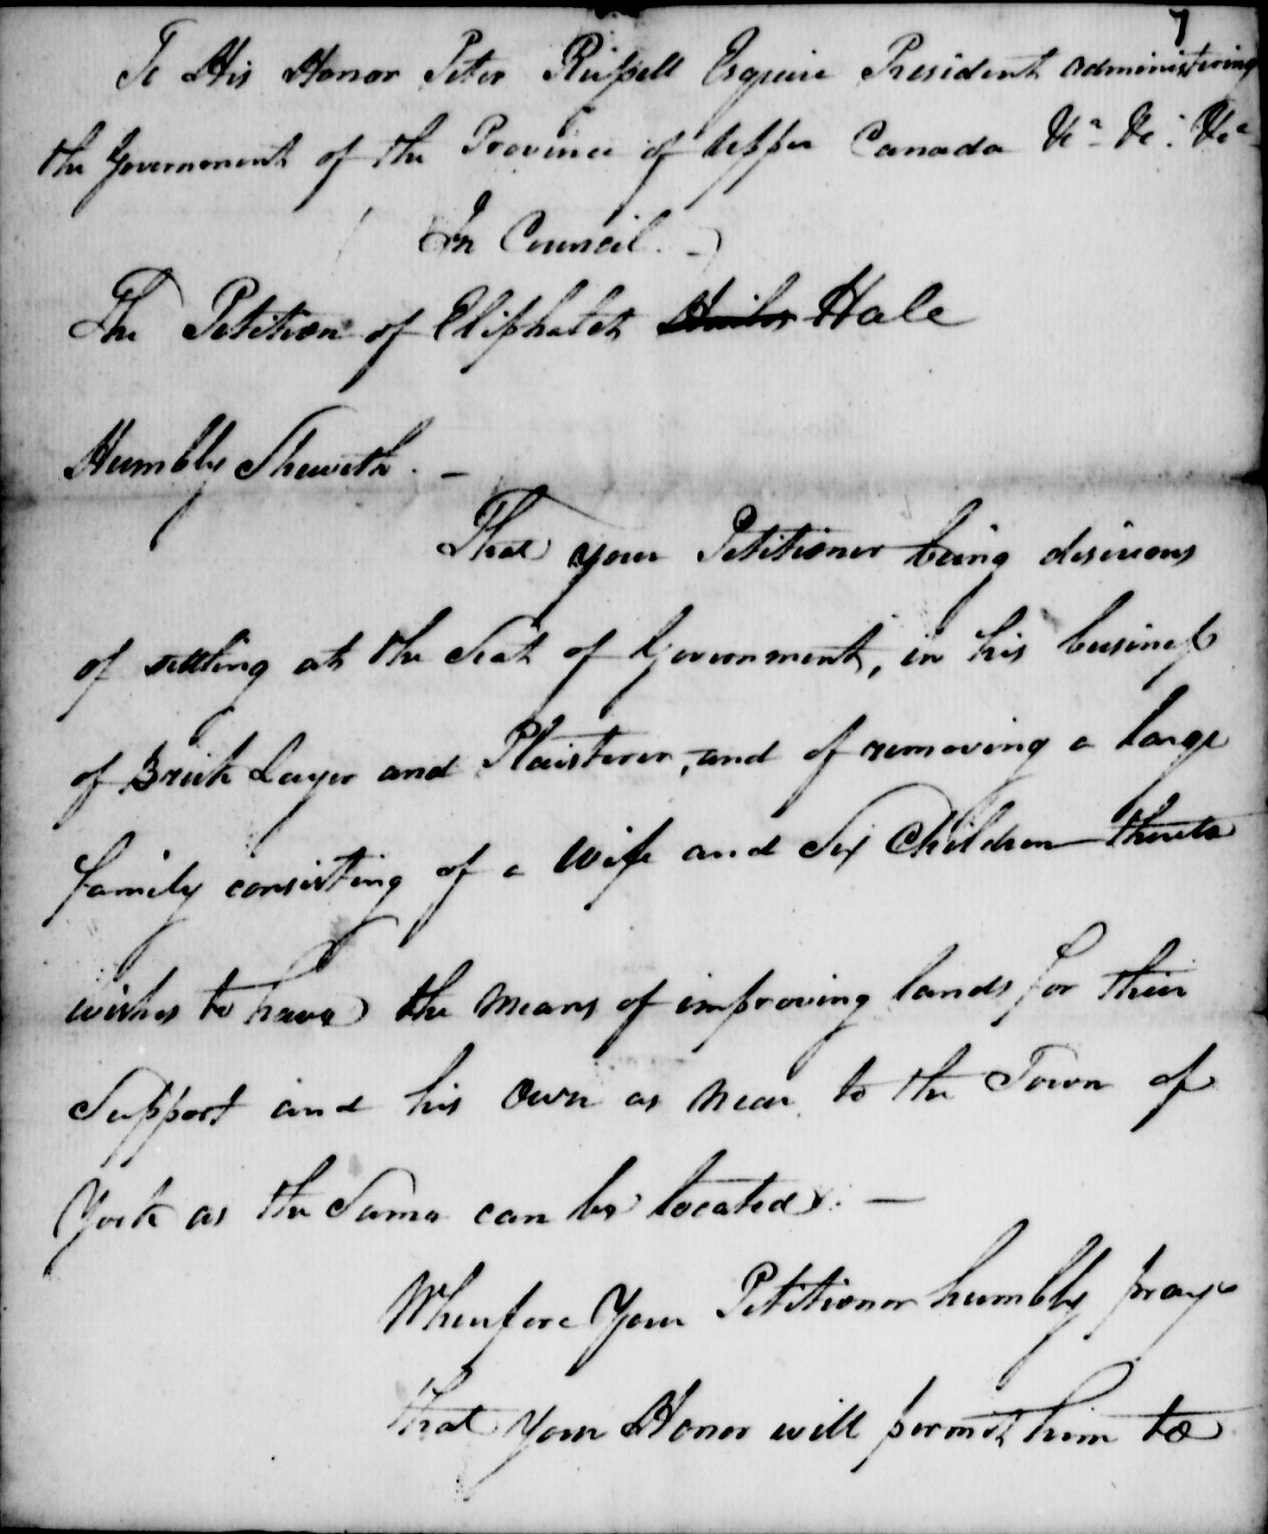 7
To His Honor Peter Russell Esquire President administering
the Government of the Province of Upper Canada &ca &c. &ca
In Council. -
The Petition of Eliphalet Hale
Humbly Sheweth. -
That your Petitioner being desirous
of settling at the Seat of Government, in his business
of Brick Layer and Plaisterer, and of removing a large
family consisting of a Wife and Six Children thereto
wishes to have the means of improving lands for their
Support and his own as near to the Town of
York as the Same can be located. —
Wherefore Your Petitioner humbly prays
that Your Honor will permit him to